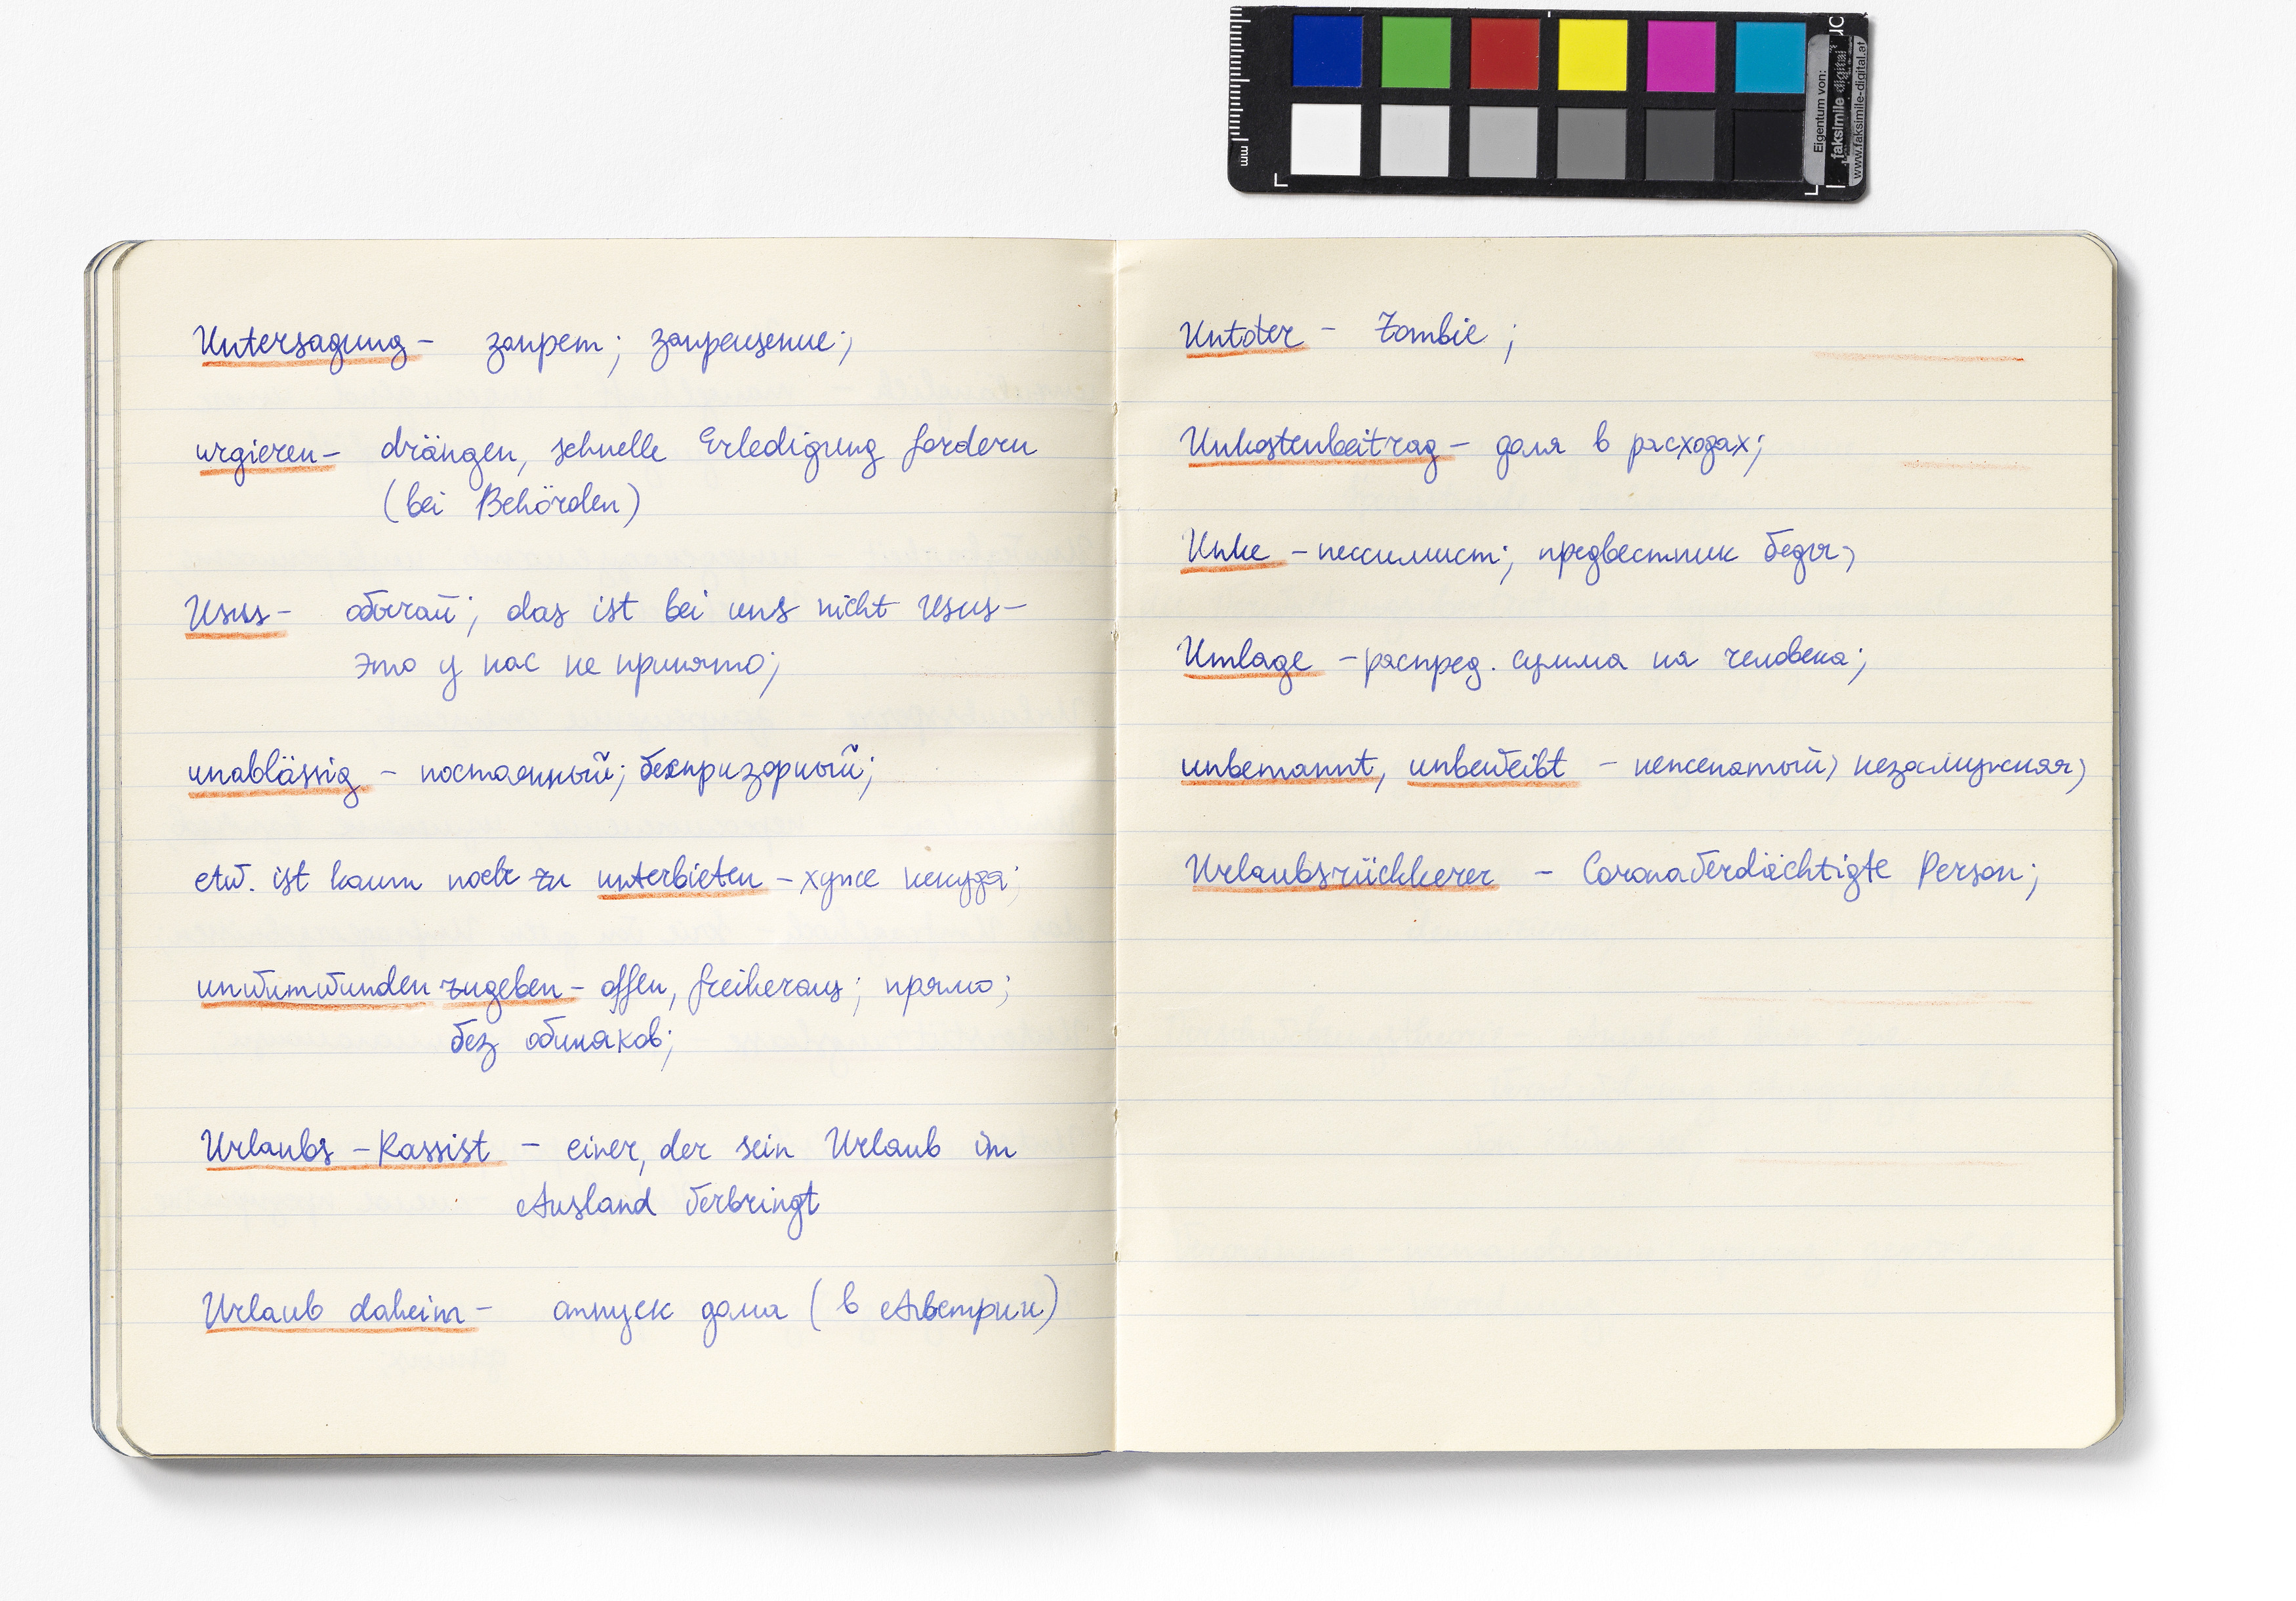 mm
Eigentum von:
faksimile digital
www.faksimile-digital.at
Untersagung - запрет; запрещение;
urgieren - drängen, schnelle Erledigung fordern
(bei Behörden)
Usus - обычай; das ist bei uns nicht Usus -
это у нас не принято;
unablässig - постоянный; беспризорный;
etw. ist kaum noch zu unterbieten - хуже некуда;
unwumwunden zugeben - offen, freiheraus; прямо;
без обиняков;
Urlaubs - Rassist - einer, der sein Urlaub im
Ausland verbringt
Urlaub daheim - отпуск дома (в Австрии)
Untoter - Zombie;
Unkostenbeitrag - доля в расходах;
Unke - пессимист; предвестник беды;
Umlage - распред. сумма на человека;
unbemannt, unbeweibt - неженатый; незамужняя;
Urlaubsrückkerer - Coronaverdächtigte Person;